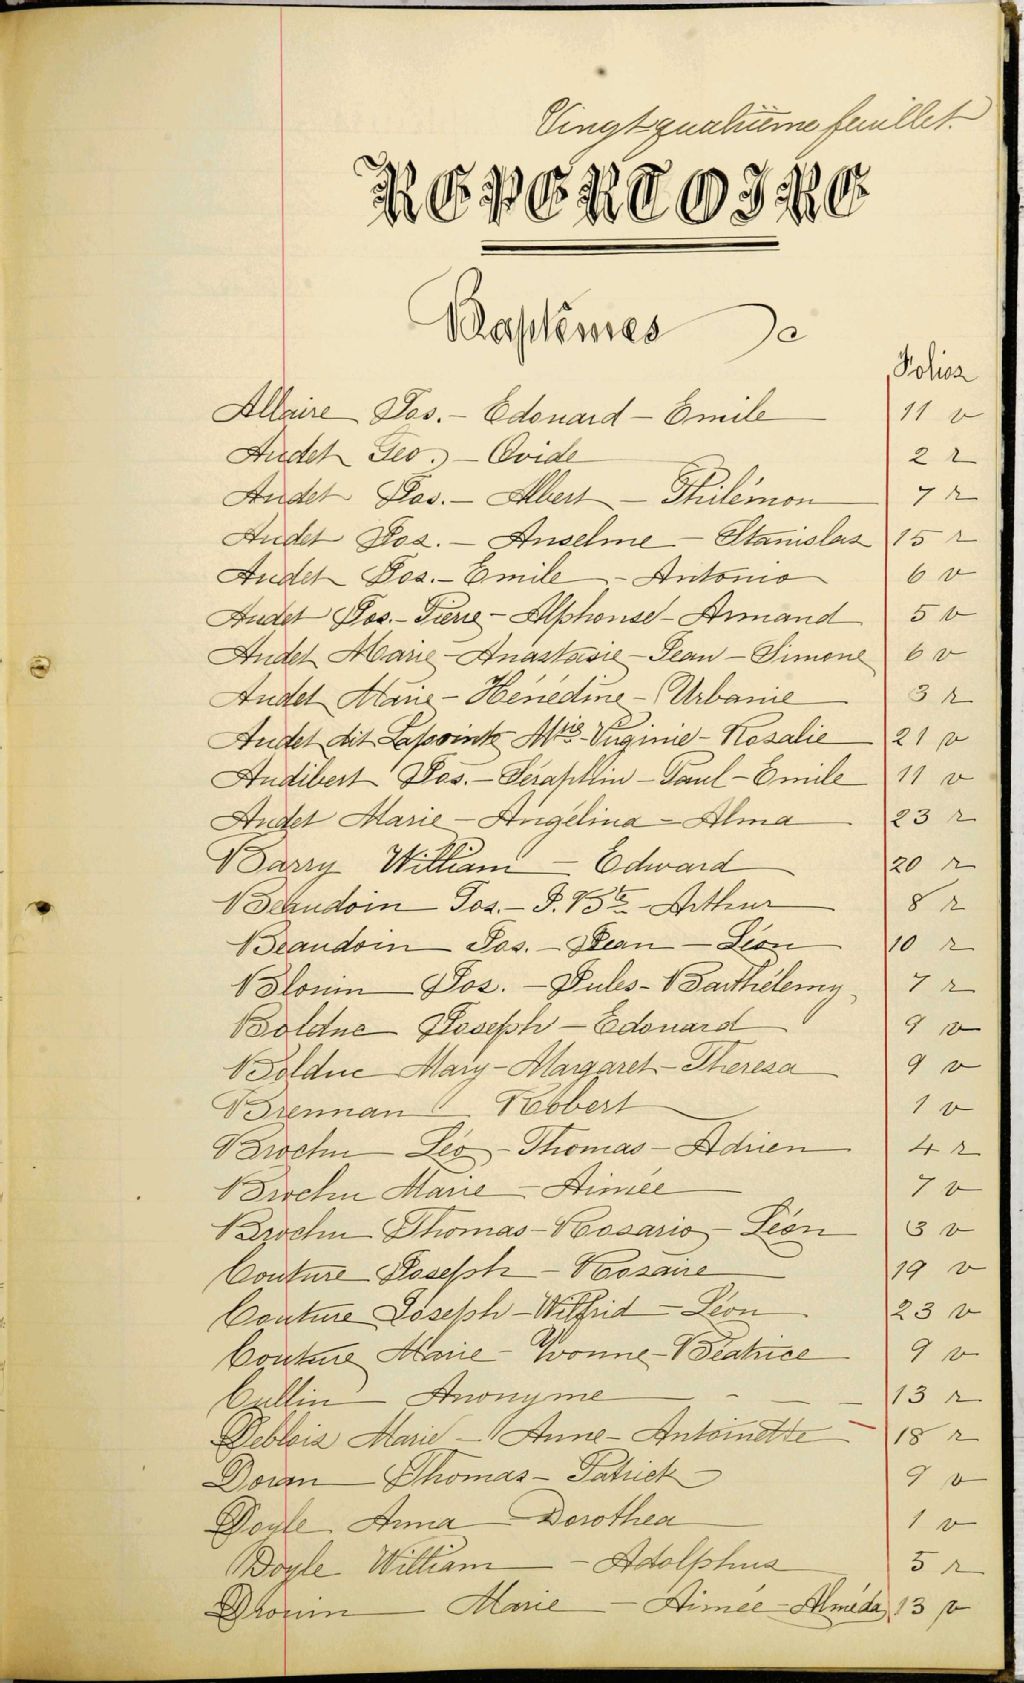 Vingt-quatrième feuillet.
REPERTOIRE
Baptêmes
Folios
Allaire Jos. - Edouard - Emile 11 v
Audet Geo. - Ovide 2 r
Audet Jos. - Albert - Philémon 7 r
Audet Jos. - Anselme - Stanislas 15 r
Audet Jos. - Emile - Antonio 6 v
Audet Jos. - Pierre - Alphonse - Armand 5 v
Audet Marie - Anastasie - Jean - Simone 6 v
Audet Marie - Hénédine - Urbanie 3 r
Audet dit Lapointe Mrie - Virginie - Rosalie 21 v
Audibert Jos. - Séraphin - Paul - Emile 11 v
Audet Marie - Angélina - Alma 23 r
Barry William - Edward 20 r
Beaudoin Jos. - J. Bte - Arthur 8 r
Beaudoin Jos. - Jean - Léon 10 r
Blouin Jos. - Jules - Barthélemy 7 r
Bolduc Joseph - Edouard 9 v
Bolduc Mary - Margaret - Theresa 9 v
Brennan Robert 1 v
Brochu Léo - Thomas - Adrien 4 r
Brochu Marie - Aimée 7 v
Brochu Thomas - Rosario - Léon 3 v
Couture Joseph - Rosaire 19 v
Couture Joseph - Wilfrid - Léon 23 v
Couture Marie - Yvonne - Béatrice 9 v
Cullin Anonyme - - - 13 r
Deblois Marie - Anne - Antoinette 18 r
Doran Thomas - Patrick 9 v
Doyle Anna Dorothea 1 v
Doyle William - Adolphus 5 r
Drouin Marie - Aimée - Alméda 13 v